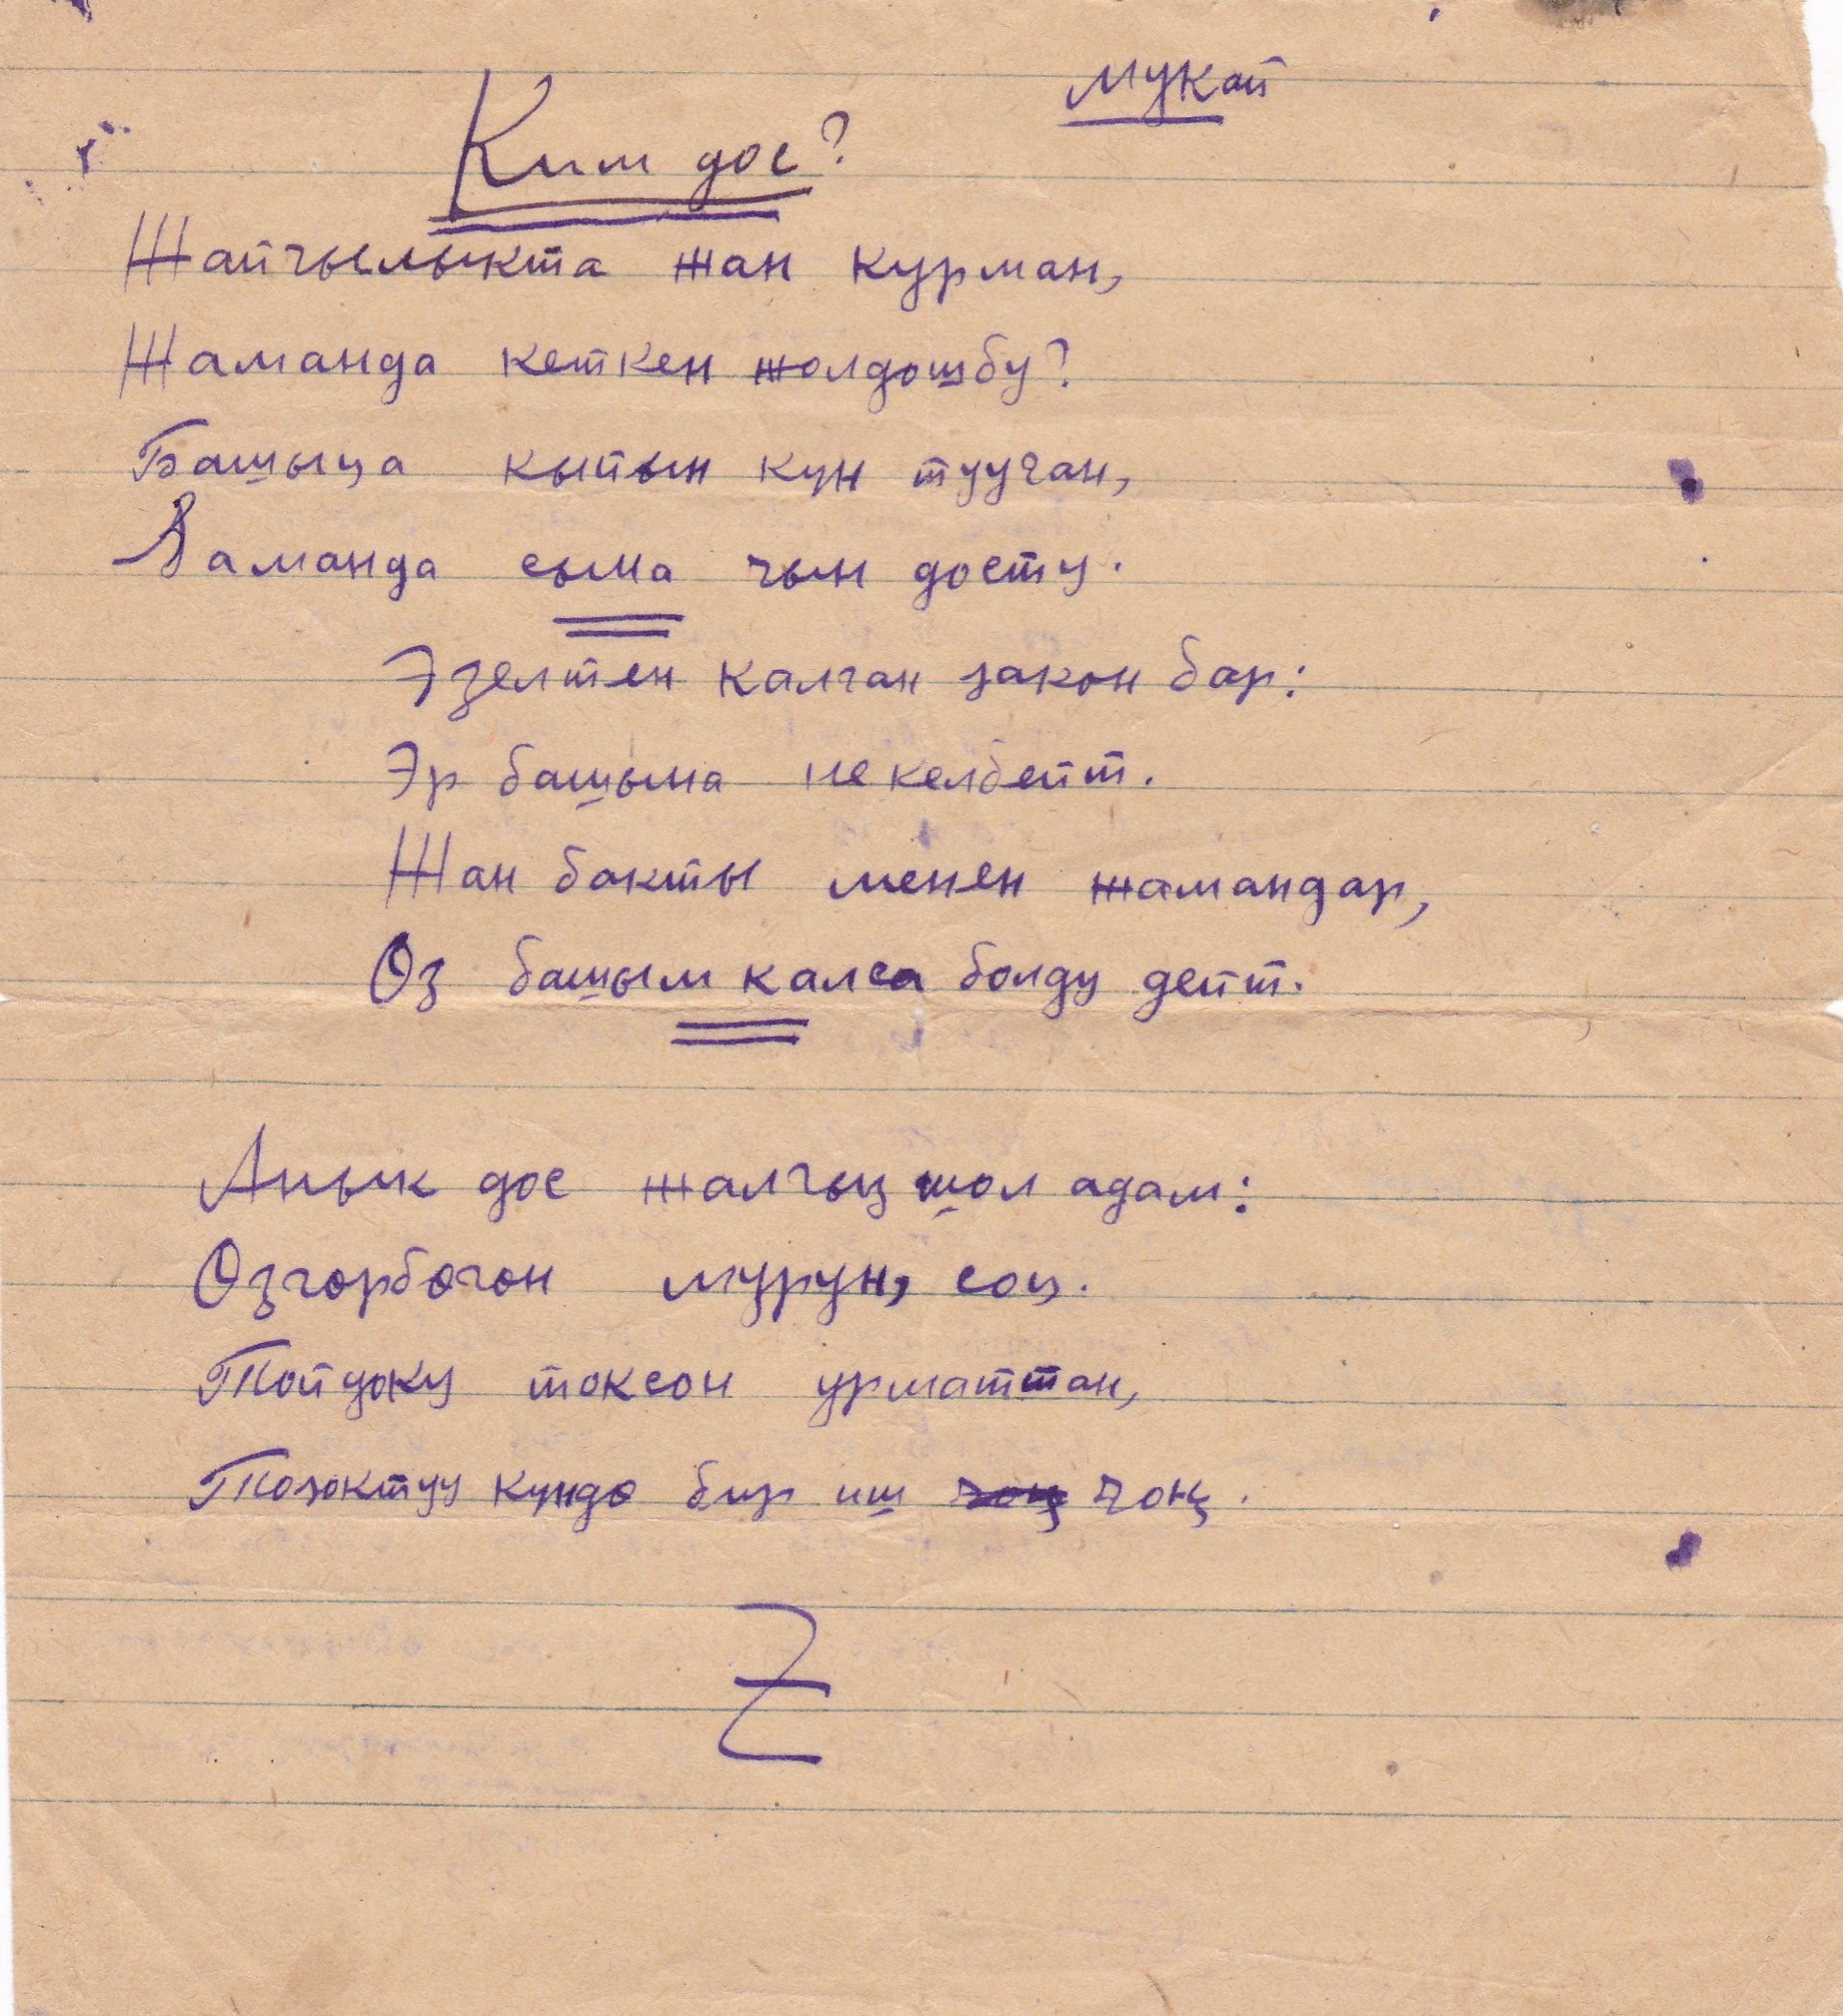 Мукай
Ким дос?
Жайчылыкта жан курман,
Жаманда кеткен жолдошбу?
Башыңа кыйын күн туучан,
Заманда сына чын досту.
Эзелтен калган закон бар:
Эр башына не келбейт.
Жан бакты менен жамандар,
Өз башым калса болду дейт.
Анык дос жалгыз шол адам:
Өзгөрбөгөн мурун, соң.
Тойдоку токсон урматтан,
Тозоктуу күндө бир иш чоң чоң.